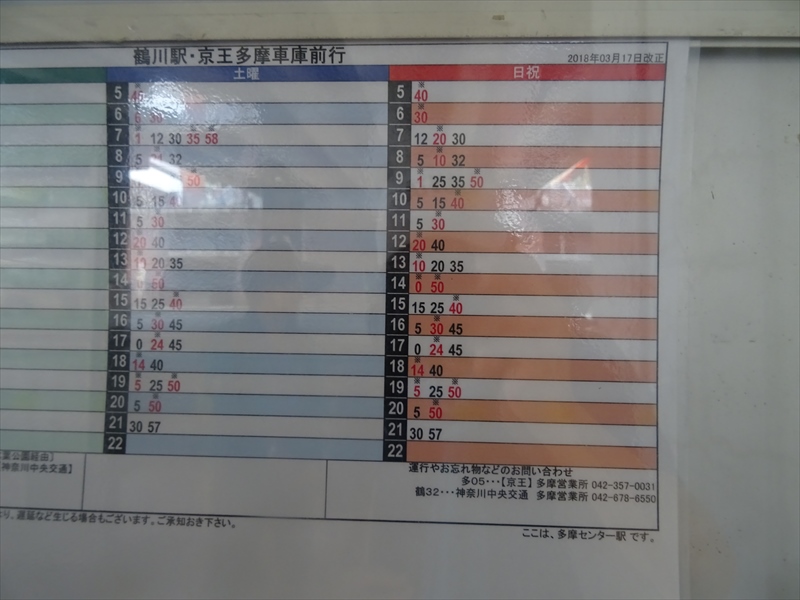 鶴川駅・京王多摩車庫前行
2018年03月17日改正
土曜
5
6
7 ※1 12 30 35 58
8 5 32
9 50
10 5 15
11 5 30
12 ※20 40
13 20 35
14
15 15 25 ※40
16 5 ※30 45
17 0 ※24 45
18 ※14 40
19 ※5 25 ※50
20 5 ※50
21 30 57
22
日祝
5 ※40
6 ※30
7 12 ※20 30
8 5 ※10 32
9 ※1 25 35 ※50
10 5 15 ※40
11 5 ※30
12 ※20 40
13 ※10 20 35
14 ※0 ※50
15 15 25 ※40
16 5 ※30 45
17 0 ※24 45
18 ※14 40
19 ※5 25 ※50
20 5 ※50
21 30 57
22
葉公園経由】
神奈川中央交通】
運行やお忘れ物などのお問い合わせ
多05・・・【京王】 多摩営業所 042-357-0031
鶴32・・・神奈川中央交通 多摩営業所 042-678-6550
より、遅延など生じる場合もございます。ご承知おき下さい。
ここは、多摩センター駅 です。